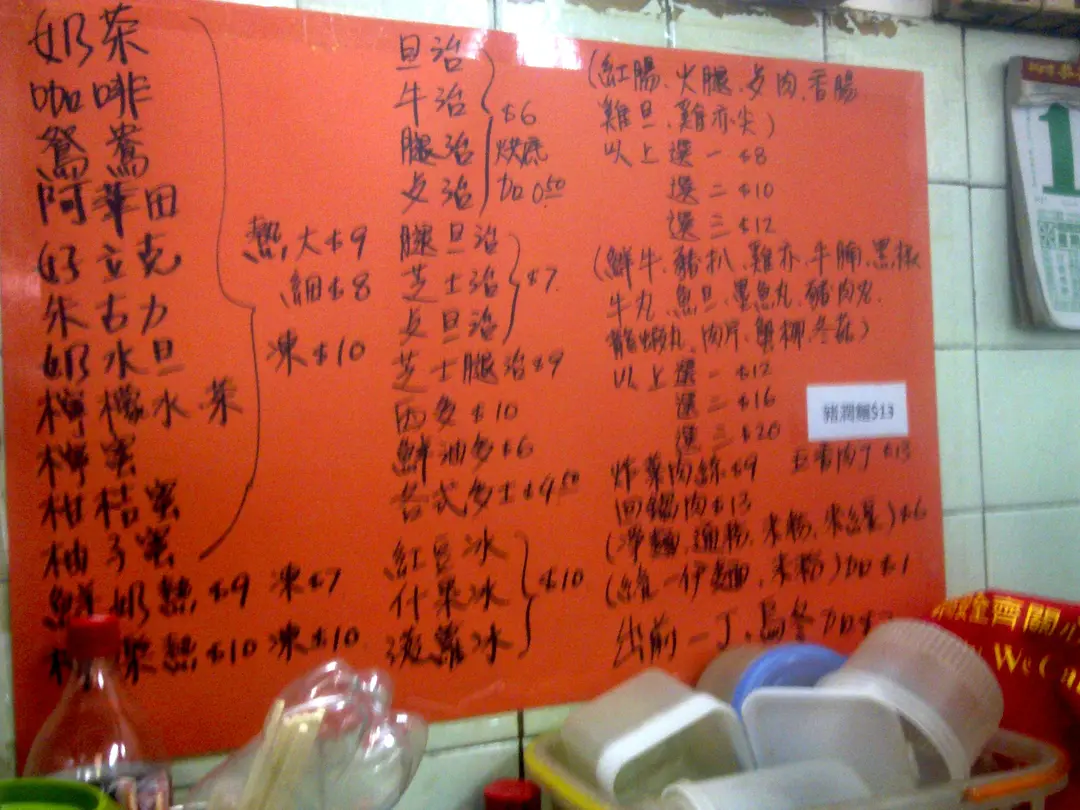 奶茶
咖啡
鴛鴦
阿華田
好立克
朱古力
奶水旦
檸檬水 茶
檸蜜
柑桔蜜
柚子蜜
熱大$9
細$8
凍$10
鮮奶熱$9 凍$7
柴熱$10 凍$10
旦治
牛治
腿治
卓治
$6
烘底
加0.50
腿旦治
芝士治
卓旦治
$7
芝士腿治$9
西多$10
鮮油多$6
各式多士$9.50
紅豆冰
什果冰
菠蘿冰
$10
(紅腸、火腿、卓肉、香腸
雞旦、雞亦尖)
以上選一$8
選二$10
選三$12
(鮮牛、豬扒、雞亦、牛腩、黑椒
牛丸、魚旦、墨魚丸、豬肉丸、
龍蝦丸、肉片、蟹柳、冬菇)
以上選一$12
選二$16
選三$20
豬潤麵$13
炸菜肉絲$9 五香肉丁$13
回鍋肉$13
(淨麵、通粉、米粉、米線)$6
伊麵、米粉)加$1
出前一丁、烏冬加
1
We Ca